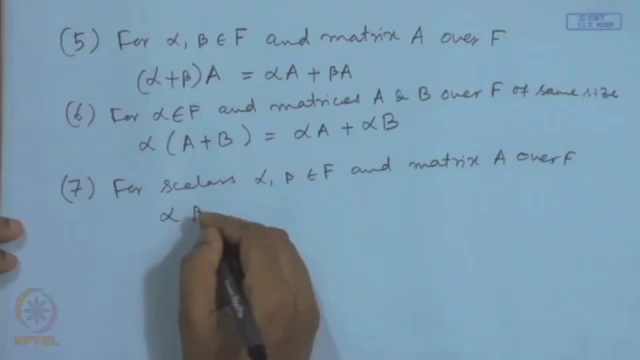 © CET
I.I.T. KGP
(5) For α, β ∈ F and matrix A over F
(α+β)A = αA + βA
(6) For α∈F and matrices A & B over F of same size
α (A+B) = αA + αB
(7) For scalars α, β ∈ F and matrix A over F
α β
NPTEL